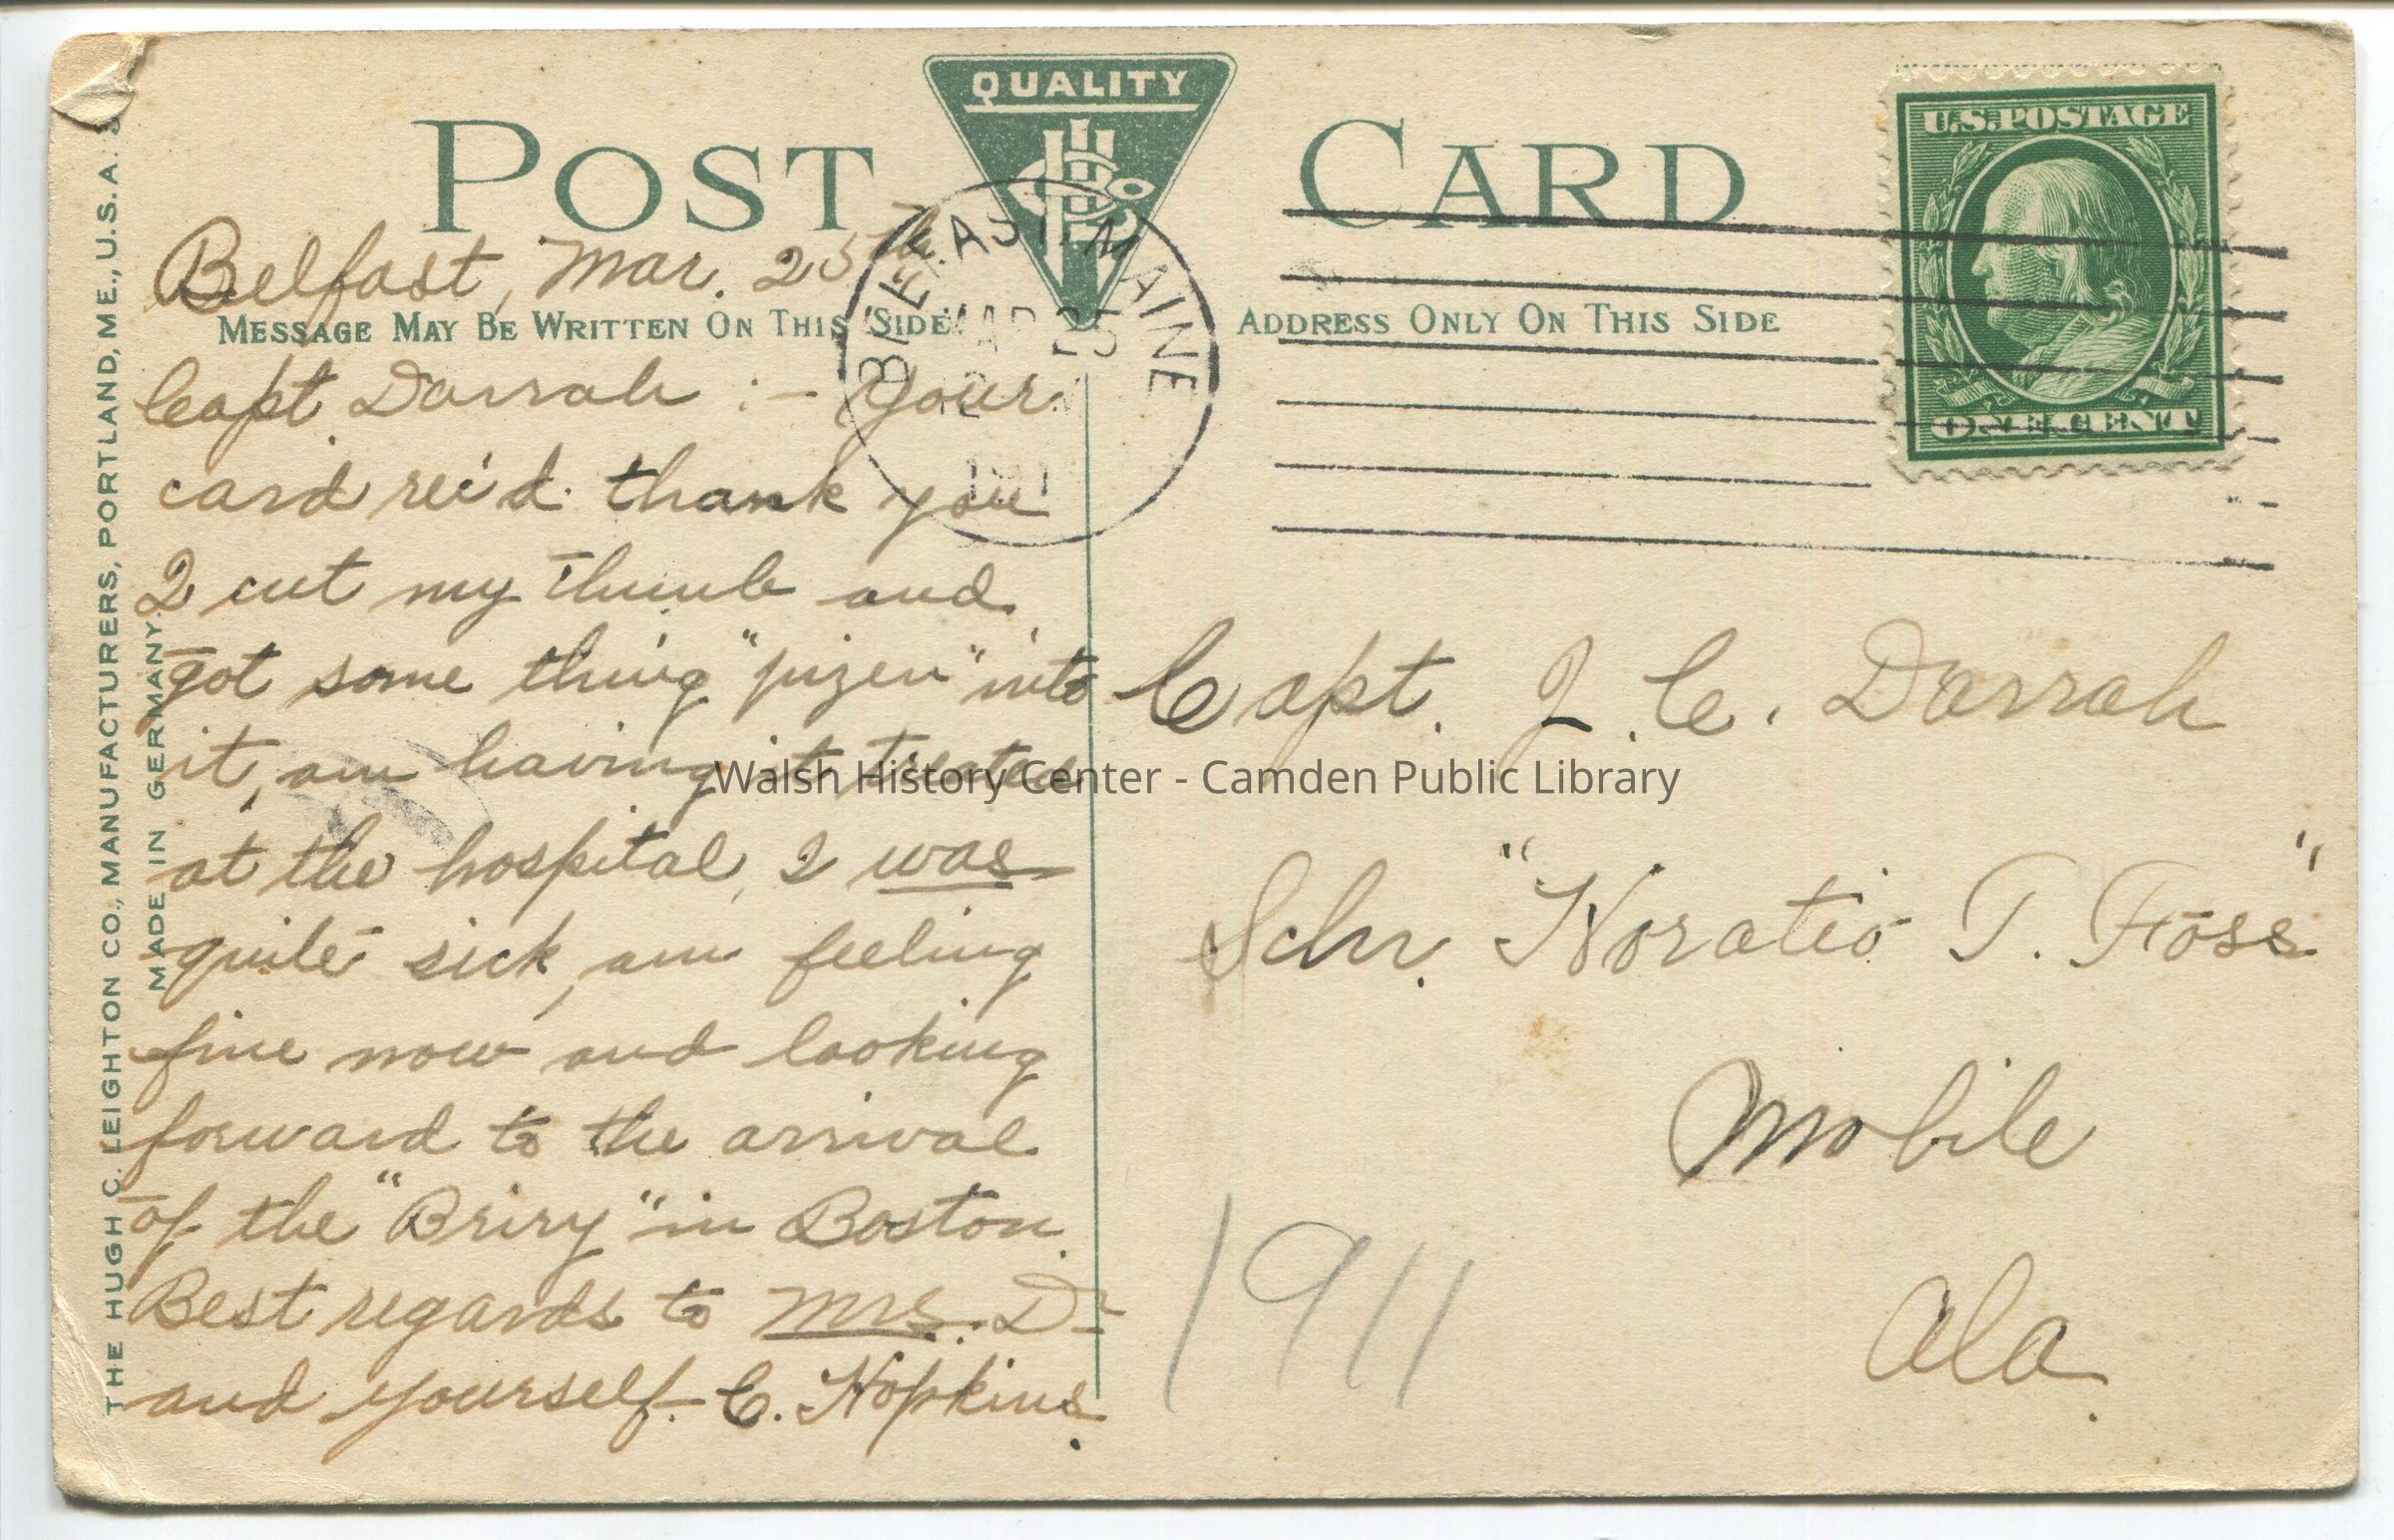 QUALITY
POST CARD
U.S. POSTAGE
ONE CENT
BELFAST MAINE
MAR 25
Belfast, Mar. 25th
MESSAGE MAY BE WRITTEN ON THIS SIDE
ADDRESS ONLY ON THIS SIDE
Capt Darrah :- Your
card rec'd. thank you
I cut my thumb and
got some thing "pizen" into
it, am having it treated
at the hospital, I was
quite sick, am feeling
fine now and looking
forward to the arrival
of the "Briry" in Boston.
Best regards to Mrs. D-
and yourself. C. Hopkins.
Capt. J. C. Darrah
Schr. "Horatio T. Foss"
Mobile
Ala.
1911
THE HUGH C. LEIGHTON CO., MANUFACTURERS, PORTLAND, ME., U.S.A.
MADE IN GERMANY.
Walsh History Center - Camden Public Library